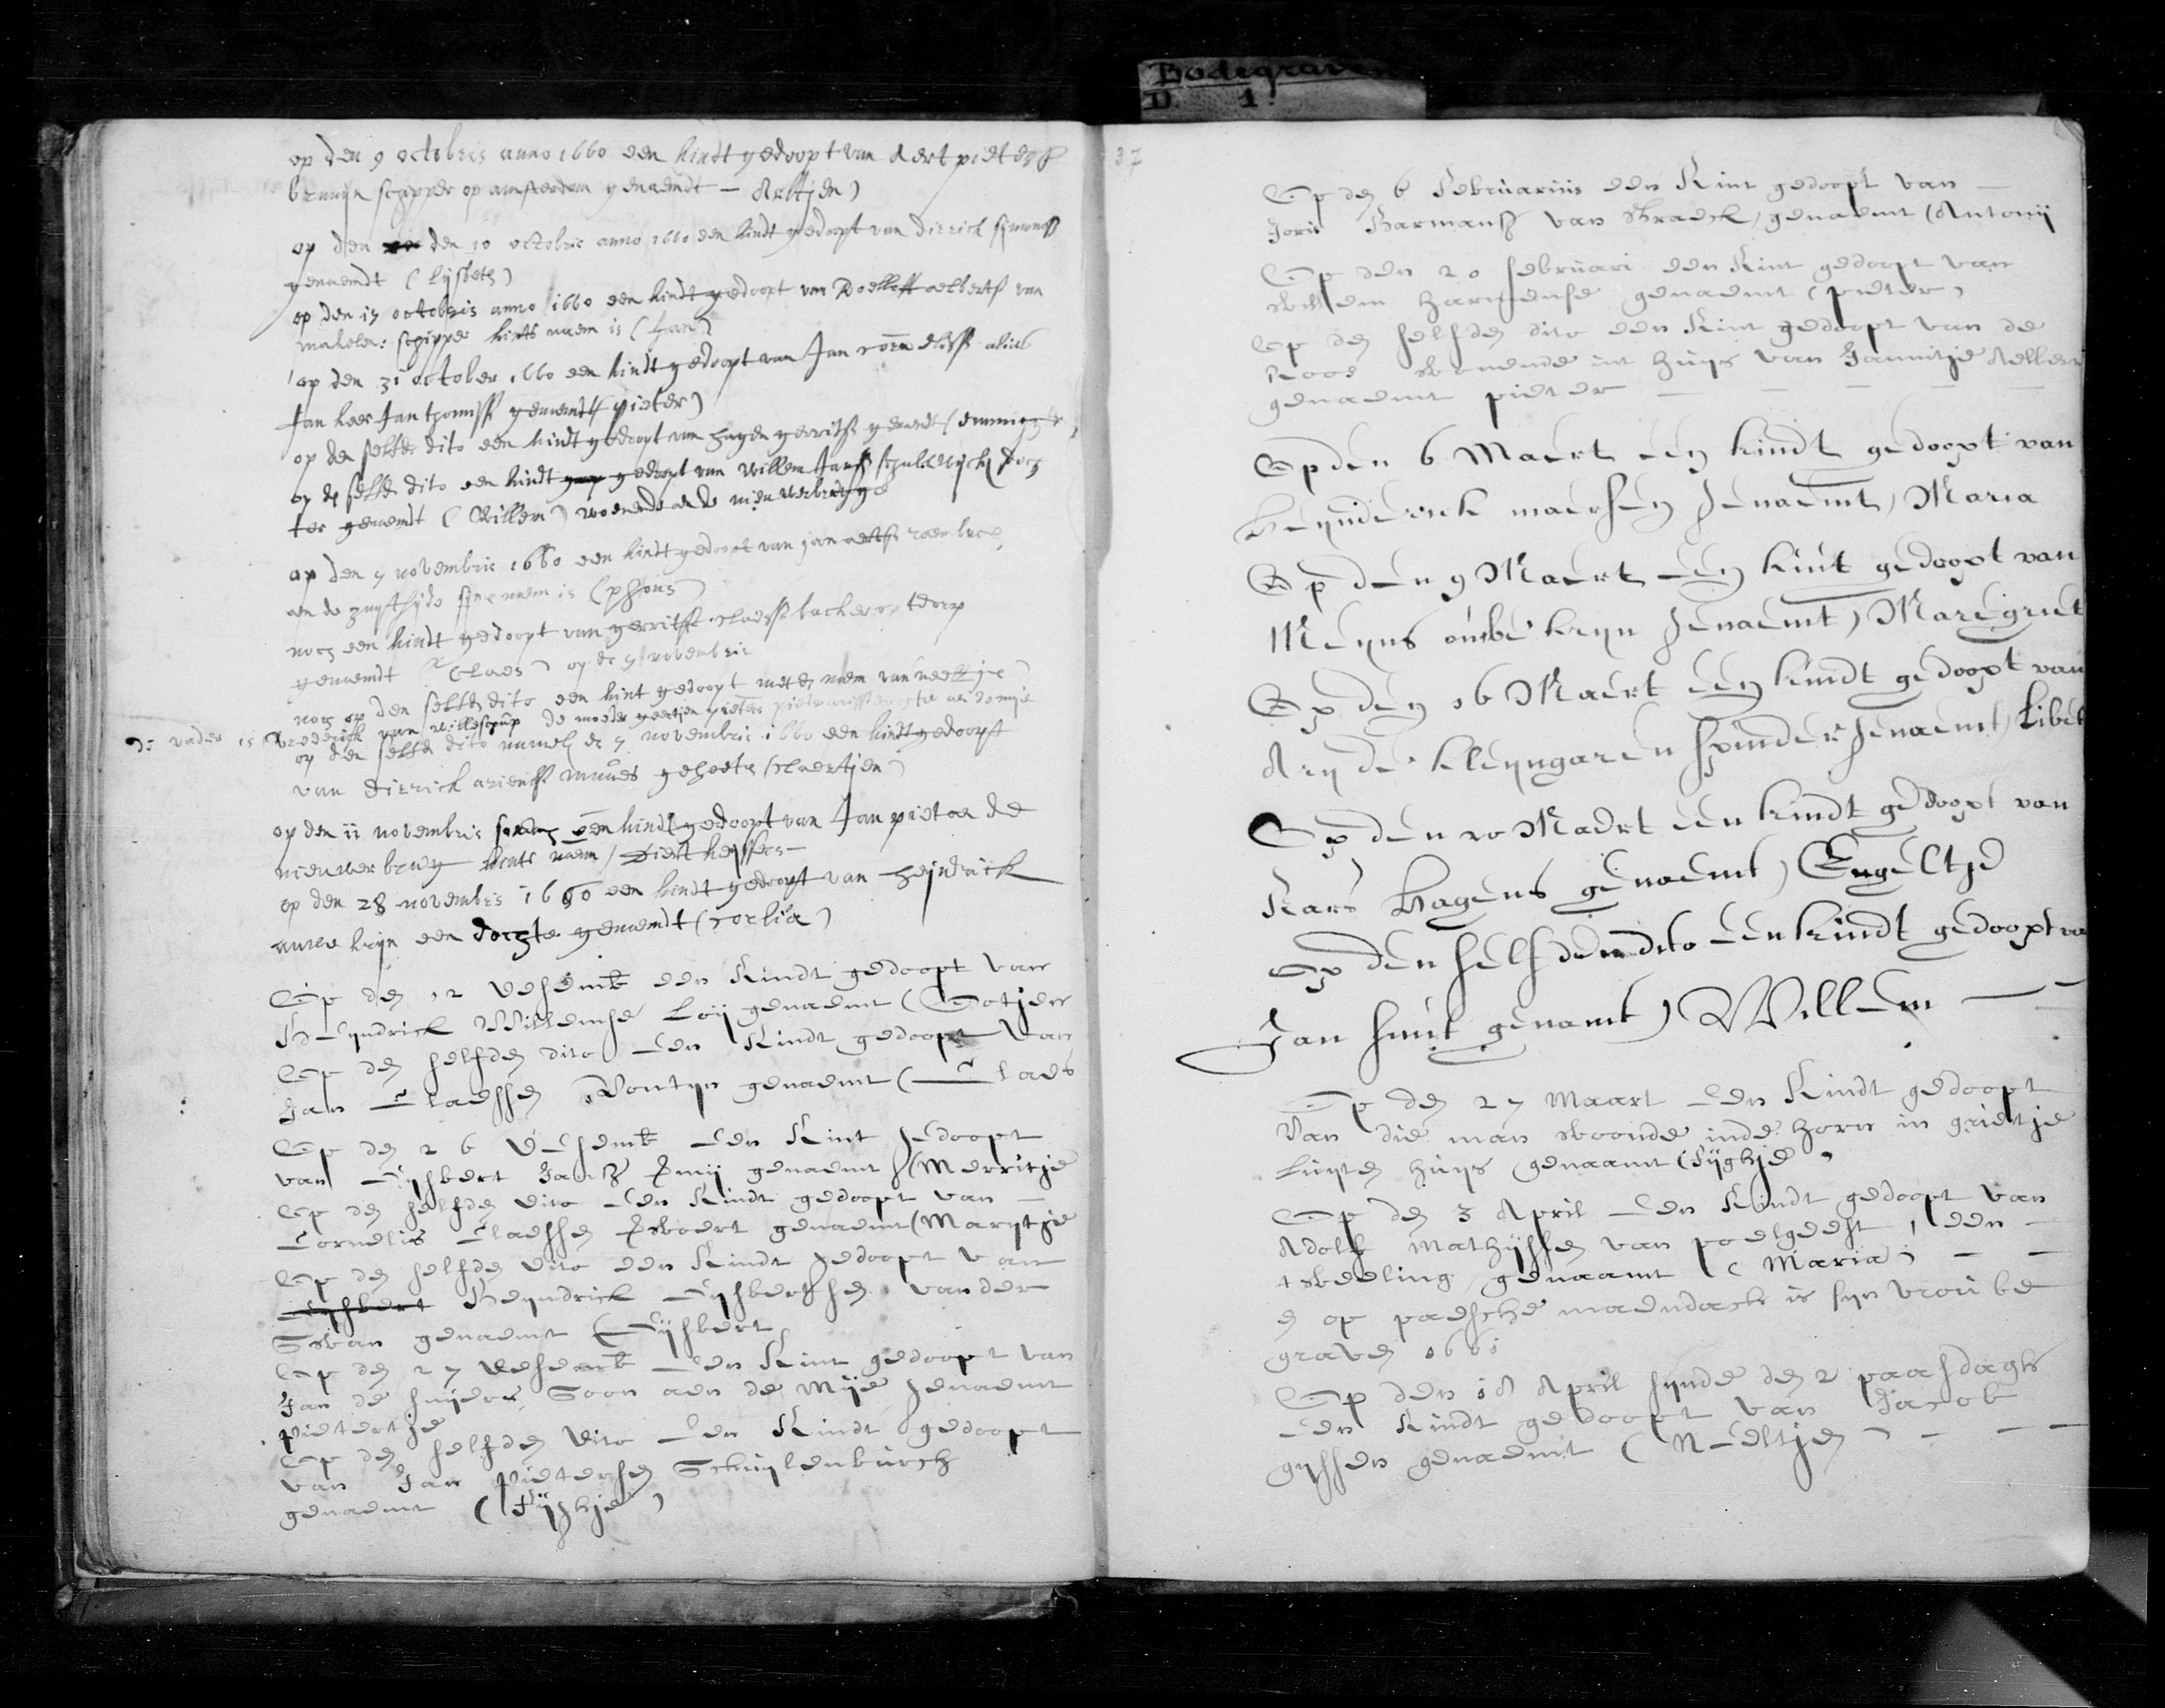 Bodegraven
D. 1.
op den 9 octobris anno 1660 een kindt gedoopt van Aert pieters
bruuijn schipper op amsterdam genaemdt - Aeltjen)
op den den 10 octobris anno 1660 een kindt gedoopt van dirrick symonss
genaemdt (lijsbeth)
op den 17 octobris anno 1660 een kindt gedoopt van Roeloff aelberts van
schipper kints naem is (Jan)
op den 31 october 1660 een kindt gedoopt van Jan alias
Jan keer Jan thoniss genaemdt (pieter)
op den selfden dito een kindt gedoopt van huygen gerritss genaemdt
op de selfde dito een kindt gedoopt van Willem Janss schulderijck
ter genaemdt (Willem) woenende aen de nieuwerbrugge
op den 7 novembris 1660 een kindt gedoopt van Jan aertss
aen de zuytsyde sijn naem is
noch een kindt gedoopt van gerritss claesss backer dorp
genaemdt (Claes) op de 7 novembris
noch op den selfden dito een kint gedoopt met de naem van neeltje
de vader is frederick van willeschup de moeder geertjen pieters
op den selfden dito namel de 7 novembris 1660 een kindt gedoopt
van dirrick ariensss genaemt (claertjen)
op den 11 novembris een kindt gedoopt van Jan pieter de
nieuwerbrug kints naem
op den 28 novembris 1660 een kindt gedoopt van heijndrick
een dochter genaemdt
Op den 12 desemb een Kindt gedoopt van
Heyndrick Willemse Loij genaemt (Gotjen
Op den selfden dito een Kindt gedoopt van
Jan Claessen Pontyn genaemt (Claes
Op den 26 desemb een Kint gedoopt
van Gysbert Jansz genaemt (Merritje
Op den selfden dito een Kindt gedoopt van
Cornelis Claessen genaemt (Marytje
Op den selfden dito een Kindt gedoopt van
Gysbert Heyndrick Gysbertsen vander
Swan genaemt (Gysbert
Op den 27 desemb een Kint gedoopt van
Jan de snyders Soon aen de Mije genaemt
pietertje
Op den selfden dito een Kindt gedoopt
van Jan Pietersen Schuylenburch
genaemt (Fijghje)
37
Op den 6 Februarius een Kint gedoopt van
Joris Harmansz van genaemt (Antonij
Op den 20 februari een Kint gedoopt van
Willem Harmense genaemt (pieter)
Op den selfden dito een Kint gedoopt van de
Roos wonende int huys van Jannitje Aellert
genaemt pieter
Op den 6 Maert een kindt gedoopt van
Heynderick maersen genaemt, Maria
Op den 9 Maert een kint gedoopt van
Meyns genaemt, Maregriet
Op den 16 Maert een kindt gedoopt van
Ary de kleyn garen spinder genaemt, Libet
Op den 20 Maert een kindt gedoopt van
Kars Hagens genaemt, Engeltje
Op den selfden dito een kindt gedoopt va
Jan smit genamt) Willem
Op den 27 Maart een Kindt gedoopt
van die man woonde inde horn in grietje
Luyten huys genaamt (Fijghje
Op den 3 April een Kindt gedoopt van
Adolf Mathijssen van poelgeest, een
tweeling genaamt (Maria)
en op paesche maendach is syn vrou be
graven 1661
Op den 18 April synde den 2 paasdagh
een Kindt gedoopt van Jacob
gyssen genaemt (Neeltjen)